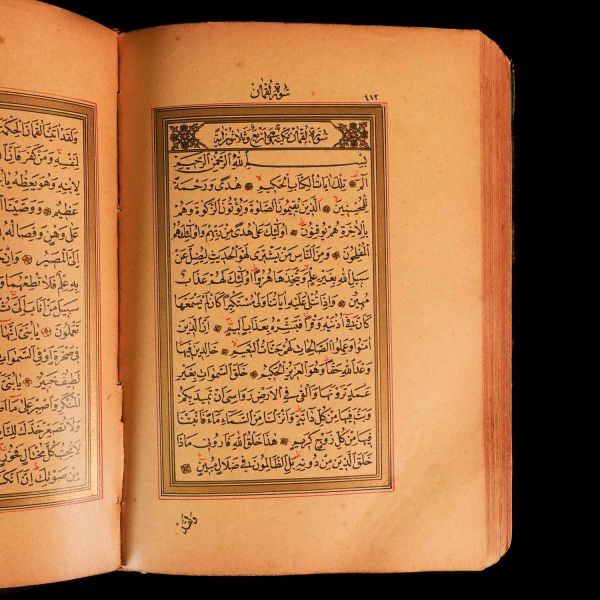 سورة لقمان
٤١٣
سورة لقمان مكية وهي اربع وثلاثون اية
بسم الله الرحمن الرحيم
الم تلك ايات الكتاب الحكيم هدى ورحمة
للمحسنين الذين يقيمون الصلوة ويؤتون الزكوة وهم
بالاخرة هم يوقنون اولئك على هدى من ربهم واولئك هم
المفلحون ومن الناس من يشترى لهو الحديث ليضل عن
سبيل الله بغير علم ويتخذها هزوا اولئك لهم عذاب
مهين واذا تتلى عليه اياتنا ولى مستكبرا كان لم يسمعها
كان فى اذنيه وقرا فبشره بعذاب اليم ان الذين
امنوا وعملوا الصالحات لهم جنات النعيم خالدين فيها
وعد الله حقا وهو العزيز الحكيم خلق السموات بغير
عمد ترونها والقى فى الارض رواسى ان تميد بكم
وبث فيها من كل دابة وانزلنا من السماء ماء فانبتنا
فيها من كل زوج كريم هذا خلق الله فارونى ماذا
خلق الذين من دونه بل الظالمون فى ضلال مبين
ولقد
ولقد اتينا لقمان الحكمة
لنفسه ومن كفر فان
لابنه وهو يعظه
عظيم ووصينا
على وهن وفصاله
الى المصير وان
به علم فلا تطعهما
سبيل من اناب الى
تعملون يا بنى انها
فى صخرة او فى السموات
لطيف خبير يا بنى
المنكر واصبر على ما
ولا تصعر خدك
لا يحب كل مختال فخور
من صوتك ان انكر